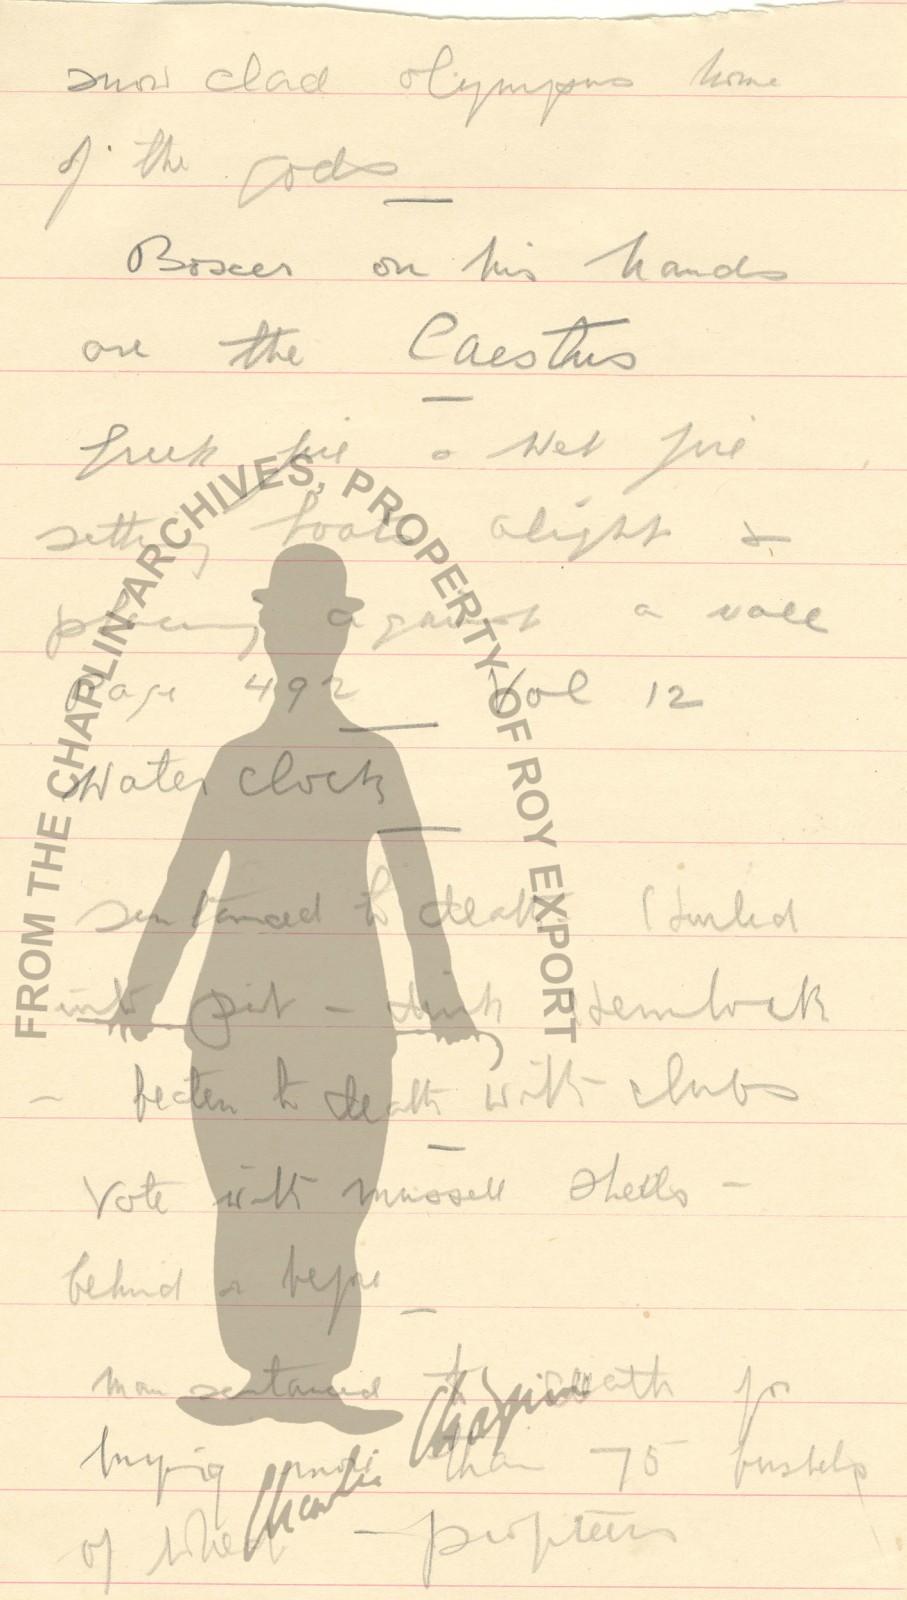 snow clad olympus home
of the gods
Boxer on his hands
are the Caestus
Greek fire a wet fire
setting boats alight &
placing against a wall
Page 492 Vol 12
Water clock
sentanced to death Hurled
into pit - drink Hemlock
- beaten to death with clubs
Vote with mussell shells -
behind or before
man sentanced to death for
buying more than 75 bushels
of wheat - profiteers
FROM THE CHAPLIN ARCHIVES, PROPERTY OF ROY EXPORT
Charlie Chaplin